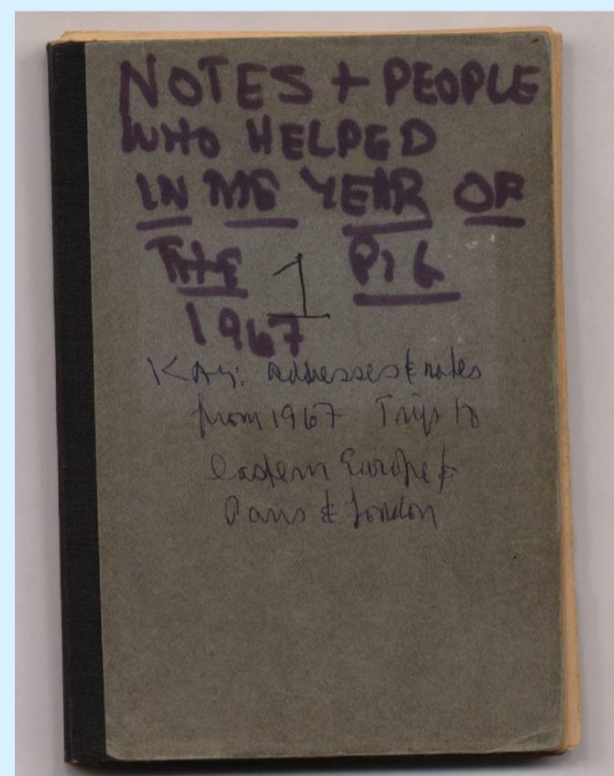 NOTES + PEOPLE
WHO HELPED
IN THE YEAR OF
THE 1 PIG
1967
KAY: addresses & notes
from 1967 Trip to
Eastern Europe &
Paris & London